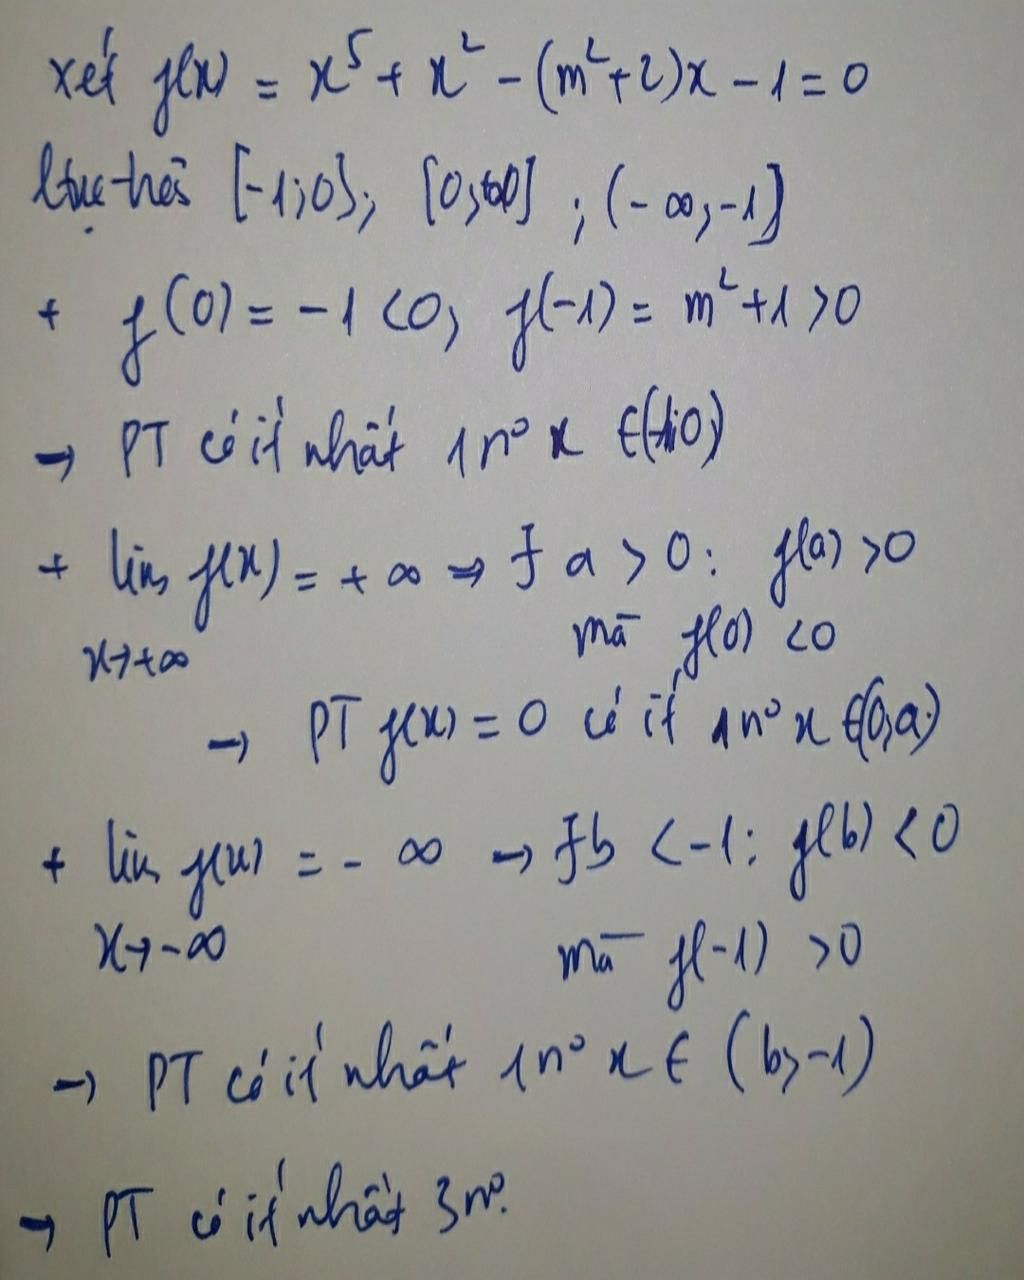 xét f(x) = x⁵ + x² - (m²+2)x - 1 = 0
ltục trên [-1;0]; [0,+∞]; (-∞,-1]
+ f(0) = -1 <0, f(-1) = m²+1 >0
→ PT có ít nhất 1 n⁰ x ∈(-1;0)
+ lim f(x) = +∞ → ∃ a > 0: f(a) >0
x→+∞ mà f(0) <0
→ PT f(x) = 0 có ít 1 n⁰ x ∈(0,a)
+ lim f(x) = -∞ → ∃b < -1: f(b) < 0
x→-∞ mà f(-1) >0
→ PT có ít nhất 1 n⁰ x ∈ (b,-1)
→ PT có ít nhất 3 n⁰.